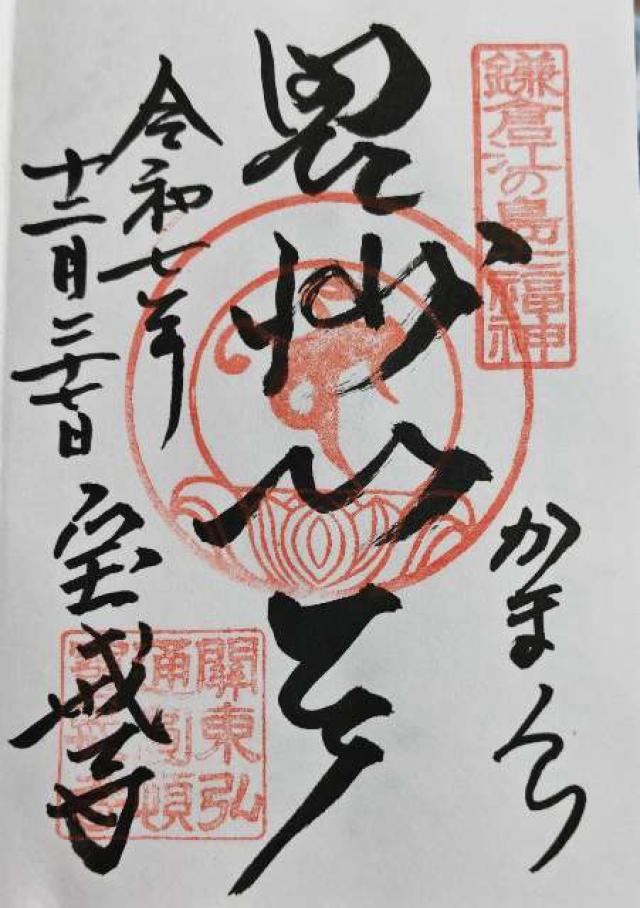 鎌倉江の島七福神
かまくら
毘沙門天
令和七年
十二月二十七日
宝戒寺
關東弘
通圓頓